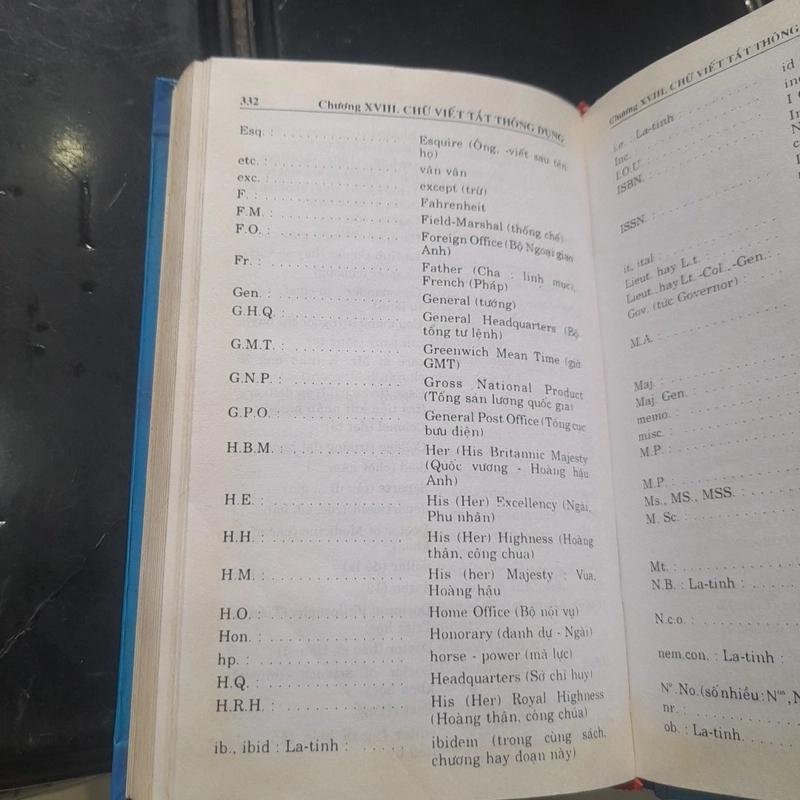 332 Chương XVIII. CHỮ VIẾT TẮT THÔNG DỤNG
Esq. : . . . . . . . . . . . . Esquire (Ông, -viết sau tên
họ)
etc. : . . . . . . . . . . . . vân vân
exc. : . . . . . . . . . . . . except (trừ)
F. : . . . . . . . . . . . . Fahrenheit
F.M. : . . . . . . . . . . . . Field-Marshal (thống chế)
F.O. : . . . . . . . . . . . . Foreign Office (Bộ Ngoại giao
Anh)
Fr. : . . . . . . . . . . . . Father (Cha : linh mục),
French (Pháp)
Gen. : . . . . . . . . . . . . General (tướng)
G.H.Q. : . . . . . . . . . . . . General Headquarters (Bộ
tổng tư lệnh)
G.M.T. : . . . . . . . . . . . . Greenwich Mean Time (giờ
GMT)
G.N.P. : . . . . . . . . . . . . Gross National Product
(Tổng sản lượng quốc gia)
G.P.O. : . . . . . . . . . . . . General Post Office (Tổng cục
bưu điện)
H.B.M. : . . . . . . . . . . . . Her (His Britannic Majesty
(Quốc vương - Hoàng hậu
Anh)
H.E. : . . . . . . . . . . . . His (Her) Excellency (Ngài,
Phu nhân)
H.H. : . . . . . . . . . . . . His (Her) Highness (Hoàng
thân, công chúa)
H.M. : . . . . . . . . . . . . His (her) Majesty : Vua,
Hoàng hậu
H.O. : . . . . . . . . . . . . Home Office (Bộ nội vụ)
Hon. : . . . . . . . . . . . . Honorary (danh dự - Ngài)
hp. : . . . . . . . . . . . . horse - power (mã lực)
H.Q. : . . . . . . . . . . . . Headquarters (Sở chỉ huy)
H.R.H. : . . . . . . . . . . . . His (Her) Royal Highness
(Hoàng thân, công chúa)
ib., ibid : La-tinh : . . . . . . ibidem (trong cùng sách,
chương hay đoạn này)
Chương XVIII. CHỮ VIẾT TẮT THÔNG
i.e. : La-tinh
Inc.
I.O.U. :
ISBN.
ISSN.
it, ital :
Lieut. hay L.t. :
Lieut., hay Lt. -Col., -Gen.
Gov. (tức Governor)
M.A. :
Maj.
Maj. Gen.
memo.
misc. :
M.P. :
M.P. :
Ms., MS., MSS. :
M. Sc. :
Mt. :
N.B. : La-tinh :
N.c.o. :
nem.con. : La-tinh :
Nº. No. (số nhiều :
nr. :
ob. : La-tinh.
id